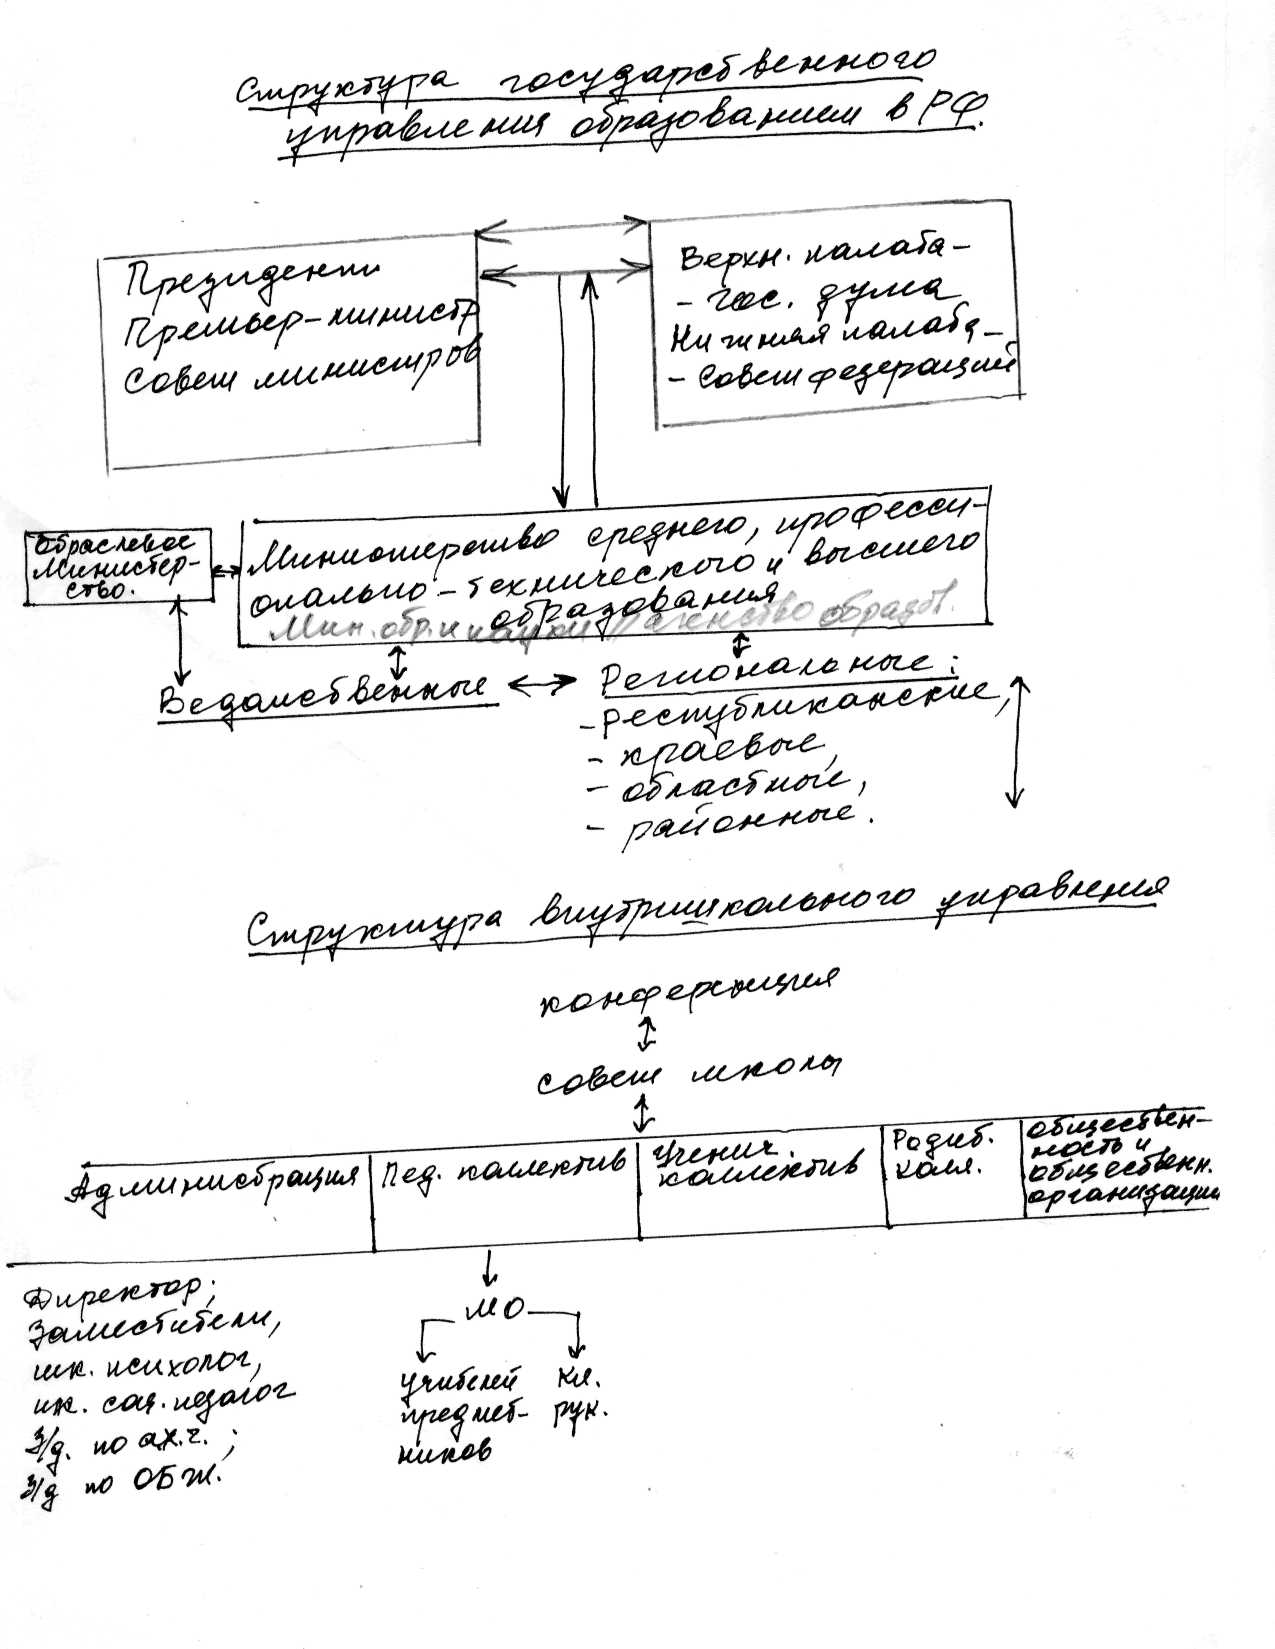 Структура государственного
управления образованием в РФ.
Президент
Премьер-министр
Совет министров
Верхн. палата-
- гос. дума
Нижняя палата-
- Совет федераций
Отраслевое
министер-
ство.
Министерство среднего, професси-
онально-технического и высшего
образования
Мин. обр. и науки Агенство образов.
Ведомственные
Региональные:
- республиканские,
- краевые,
- областные,
- районные.
Структура внутришкольного управления
конференция
совет школы
Администрация
Пед. коллектив
Ученич.
коллектив
Родит.
колл.
обществен-
ность и
обществен.
организации
Директор;
Заместители,
шк. психолог,
шк. соц. педагог
З/д. по ах.ч.;
З/д по ОБЖ.
МО
учителей
предмет-
ников
кл.
рук.